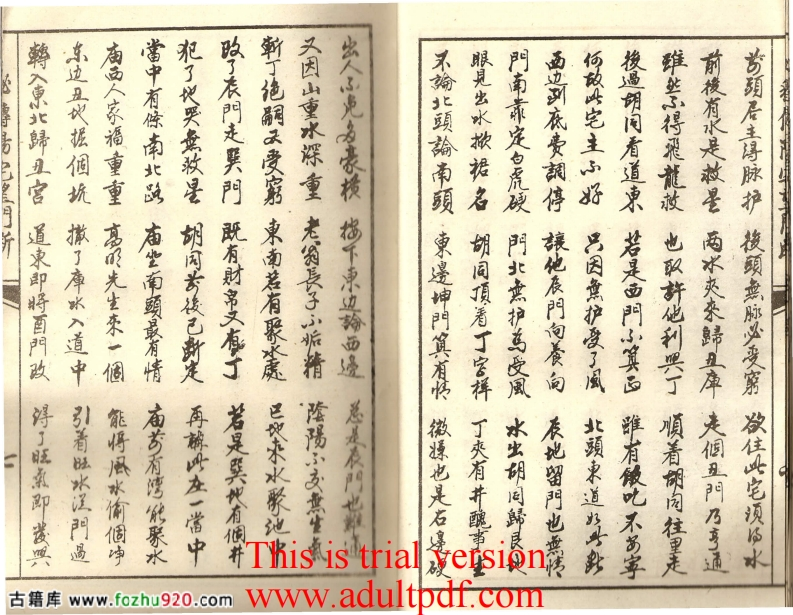 前頭居主得脉护 後頭無脉必受窮 欲住此宅須得水
前後有水是救星 两水夹来歸丑庫 走個丑門乃亨通
雖然不得飛龍救 也取許他利與丁 順着胡同往里走
後過胡同看道東 若是西門不算正 雖有飯吃不安寧
何故此宅主不好 只因無护受了風 北頭東道如此断
西边到底费調停 讓他辰門向養向 辰地留門也無情
門南靠定白虎硬 門北無护為受風 水出胡同歸艮地
眼見出水掀裙名 胡同頂着丁字样 丁夾有井醜事生
不論北頭論南頭 東邊坤門算有情 微嫌也是右邊硬
出人不免多豪横 按下東边論西邊 总是辰門也難通
又因山重水深重 老翁長子不姤精 陰陽不交無生氣
斬丁絕嗣又受窮 東南若有聚水處 巳地来水聚池中
改了辰門走巽門 既有財帛又有丁 若是巽地有個井
犯了地哭無救星 胡同前後已断定 再論此在一當中
當中有條南北路 庙坐南頭最有情 庙前有湾能聚水
庙西人家福重重 高明先生来一個 能得風水偷個
东边丑地握個坑 撤了庫水入道中 引着旺水門過
轉入東北歸丑宫 道東即将酉門改 得了旺氣即發興
This is trial version
www.adultpdf.com
古籍库 www.fozhu920.com